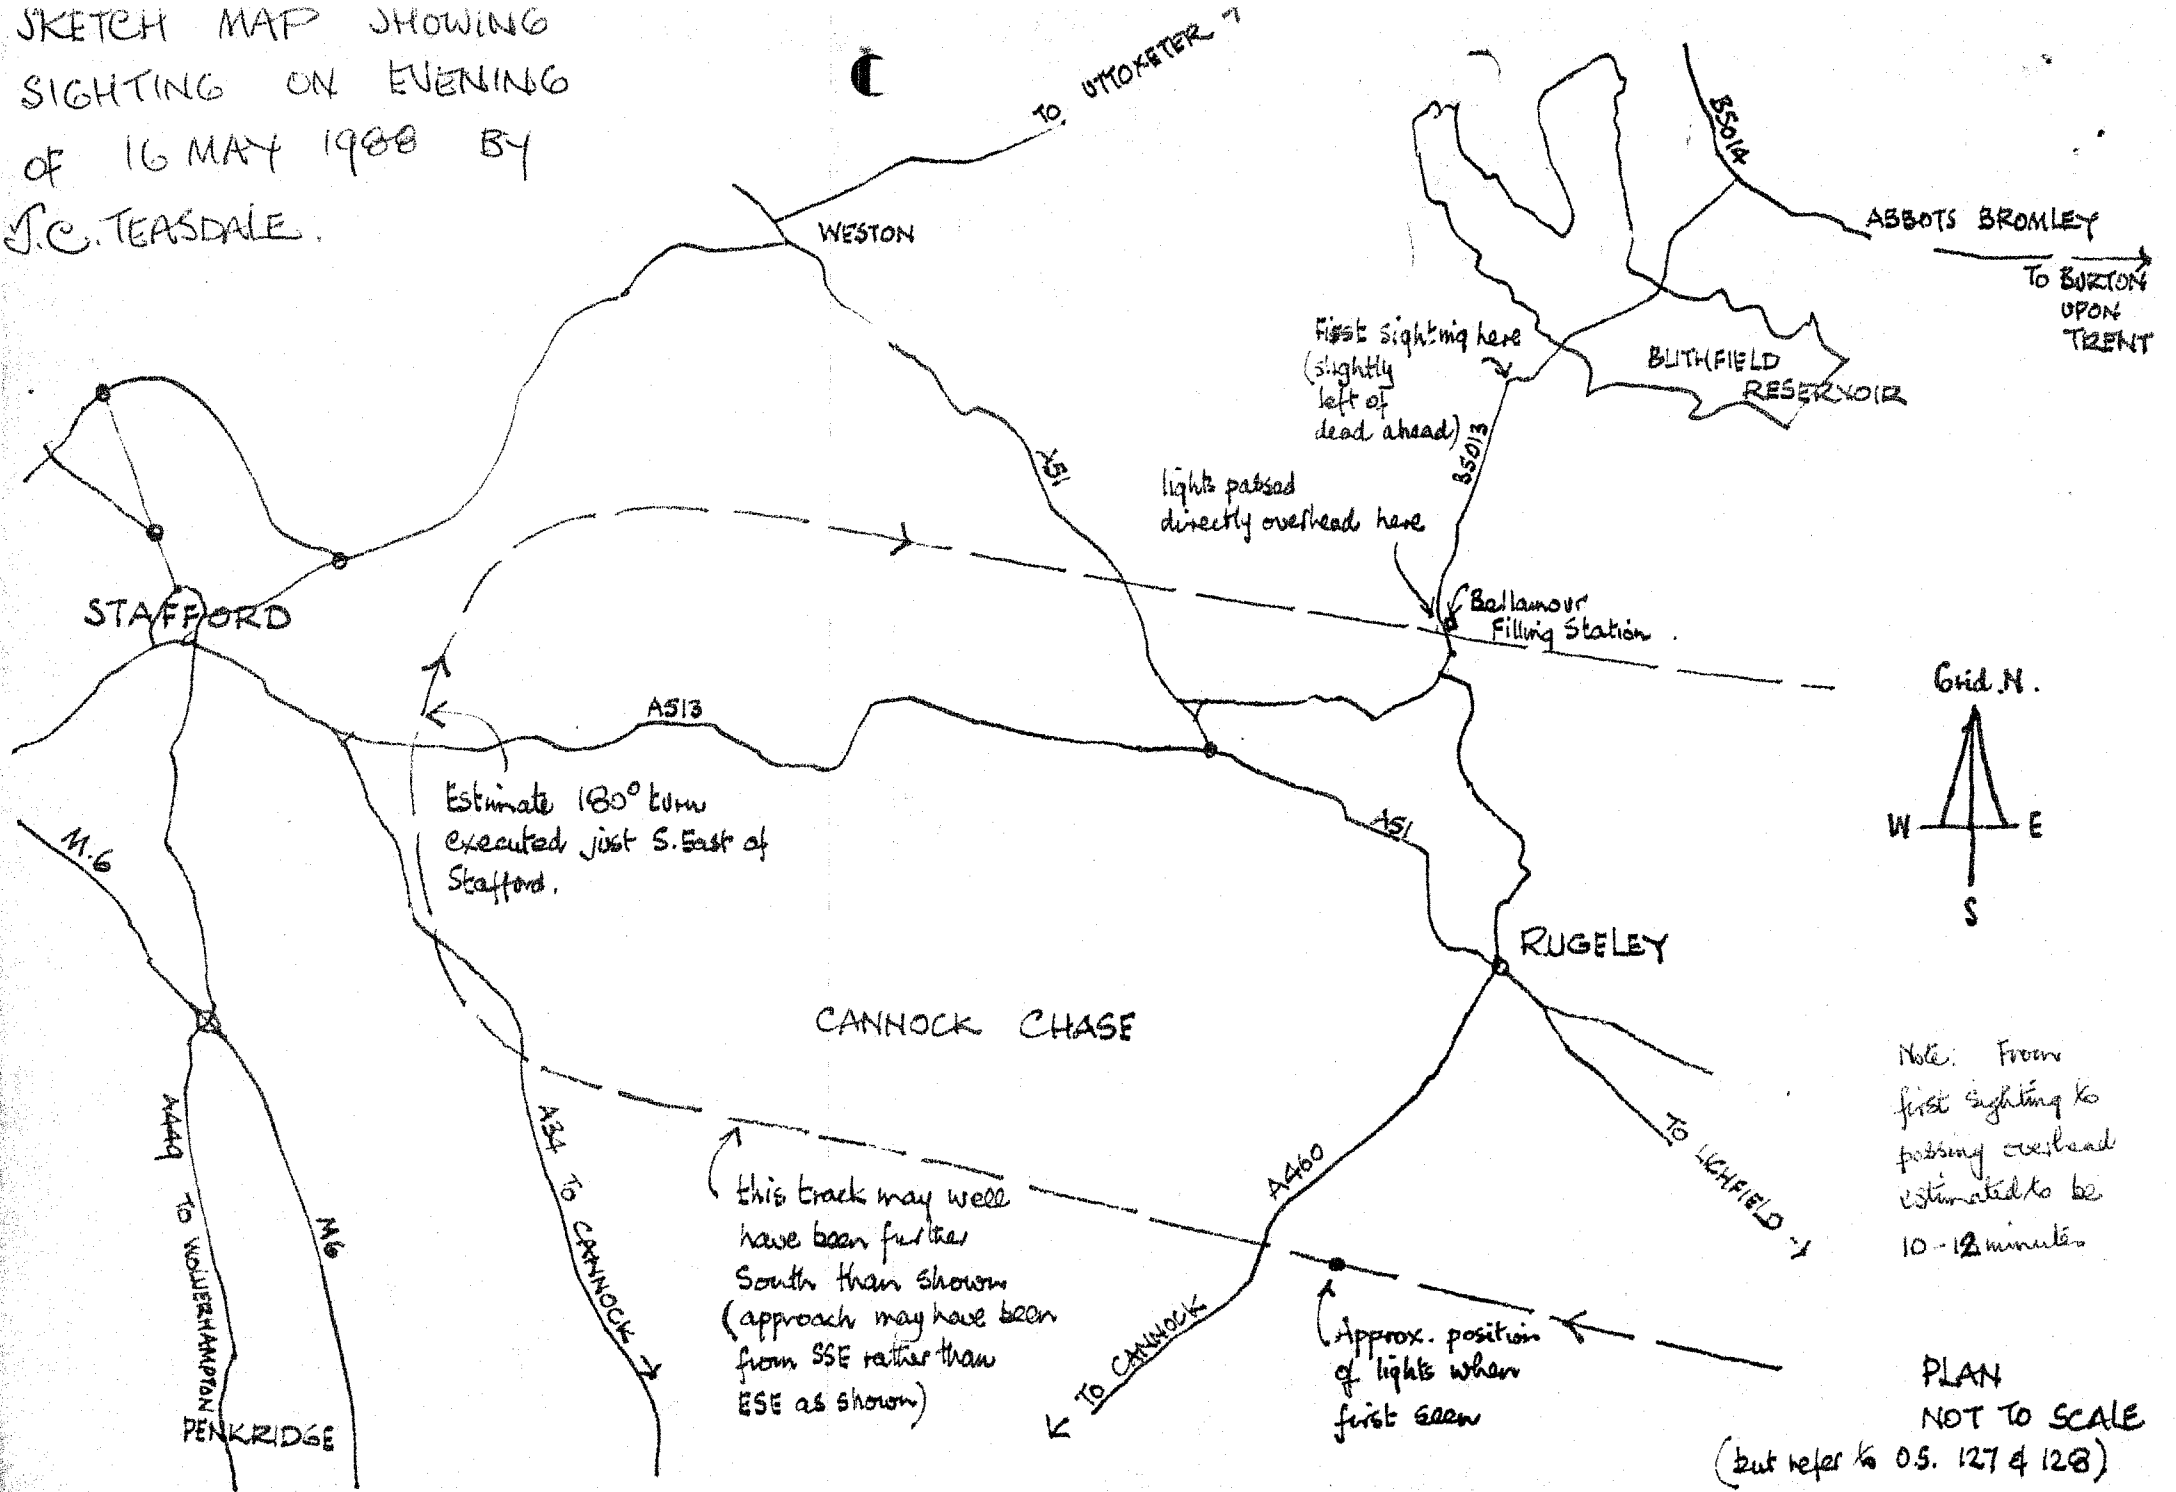 SKETCH MAP SHOWING
SIGHTING ON EVENING
OF 16 MAY 1988 BY
J.C. TEASDALE.
TO UTTOXETER
WESTON
B5014
ABBOTS BROMLEY
TO BURTON
UPON
TRENT
First sighting here
(slightly
left of
dead ahead)
BLITHFIELD
RESERVOIR
B5013
A51
lights passed
directly overhead here
Bellamour
Filling Station.
STAFFORD
A513
Grid N.
W E
S
Estimate 180° turn
executed just S.East of
Stafford.
M.6
A51
RUGELEY
CANNOCK CHASE
Note: From
first sighting to
passing overhead
estimated to be
10-12 minutes
A449
TO WOLVERHAMPTON
M6
A34 TO CANNOCK
this track may well
have been further
South than shown
(approach may have been
from SSE rather than
ESE as shown)
A460
TO CANNOCK
TO LICHFIELD
Approx. position
of lights when
first seen
PENKRIDGE
PLAN
NOT TO SCALE
(but refer to O.S. 127 & 128)